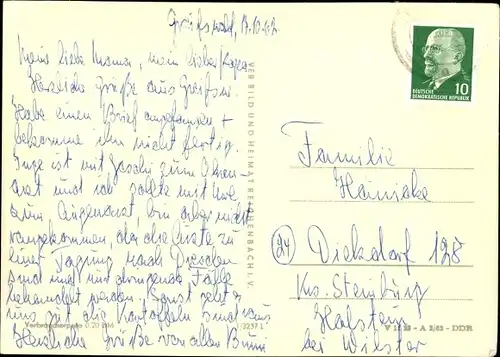 Greifswald, 17.10.62
Meine liebe Mama, mein lieber Papa
Herzliche Grüße aus Greifsw.
Habe einen Brief angefangen +
bekomme ihn nicht fertig.
Inge ist mit zum Ohren
arzt und ich sollte mit
zum Augenarzt, bin aber nicht
rangekommen, da die Ärzte zu
einer Tagung nach Dresden
sind und nur dringende Fälle
behandelt werden. Sonst geht es
uns mit die Kartoffeln sind
Herzliche Grüße von allen
Verbraucherpreis 0,20 DM
VEB BILD UND HEIMAT REICHENBACH I. V.
10
DEUTSCHE
DEMOKRATISCHE REPUBLIK
Familie
Heinicke
(24) Diekdorf 128
Krs. Steinburg
Holstein
bei Wilster
A 2/62 - DDR